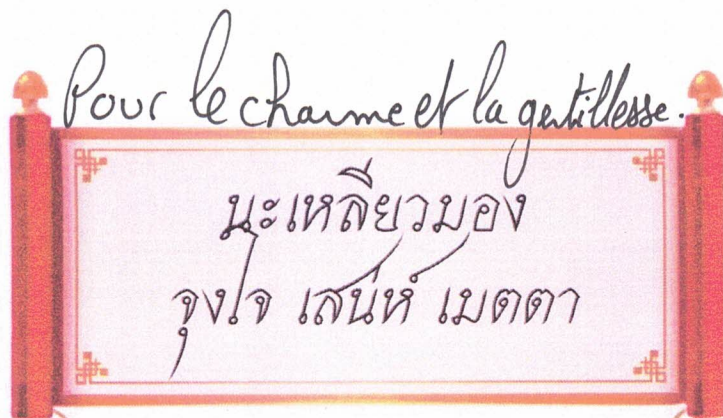 Pour le charme et la gentillesse.
นะเหลียวมอง
จูงใจ เสน่ห์ เมตตา